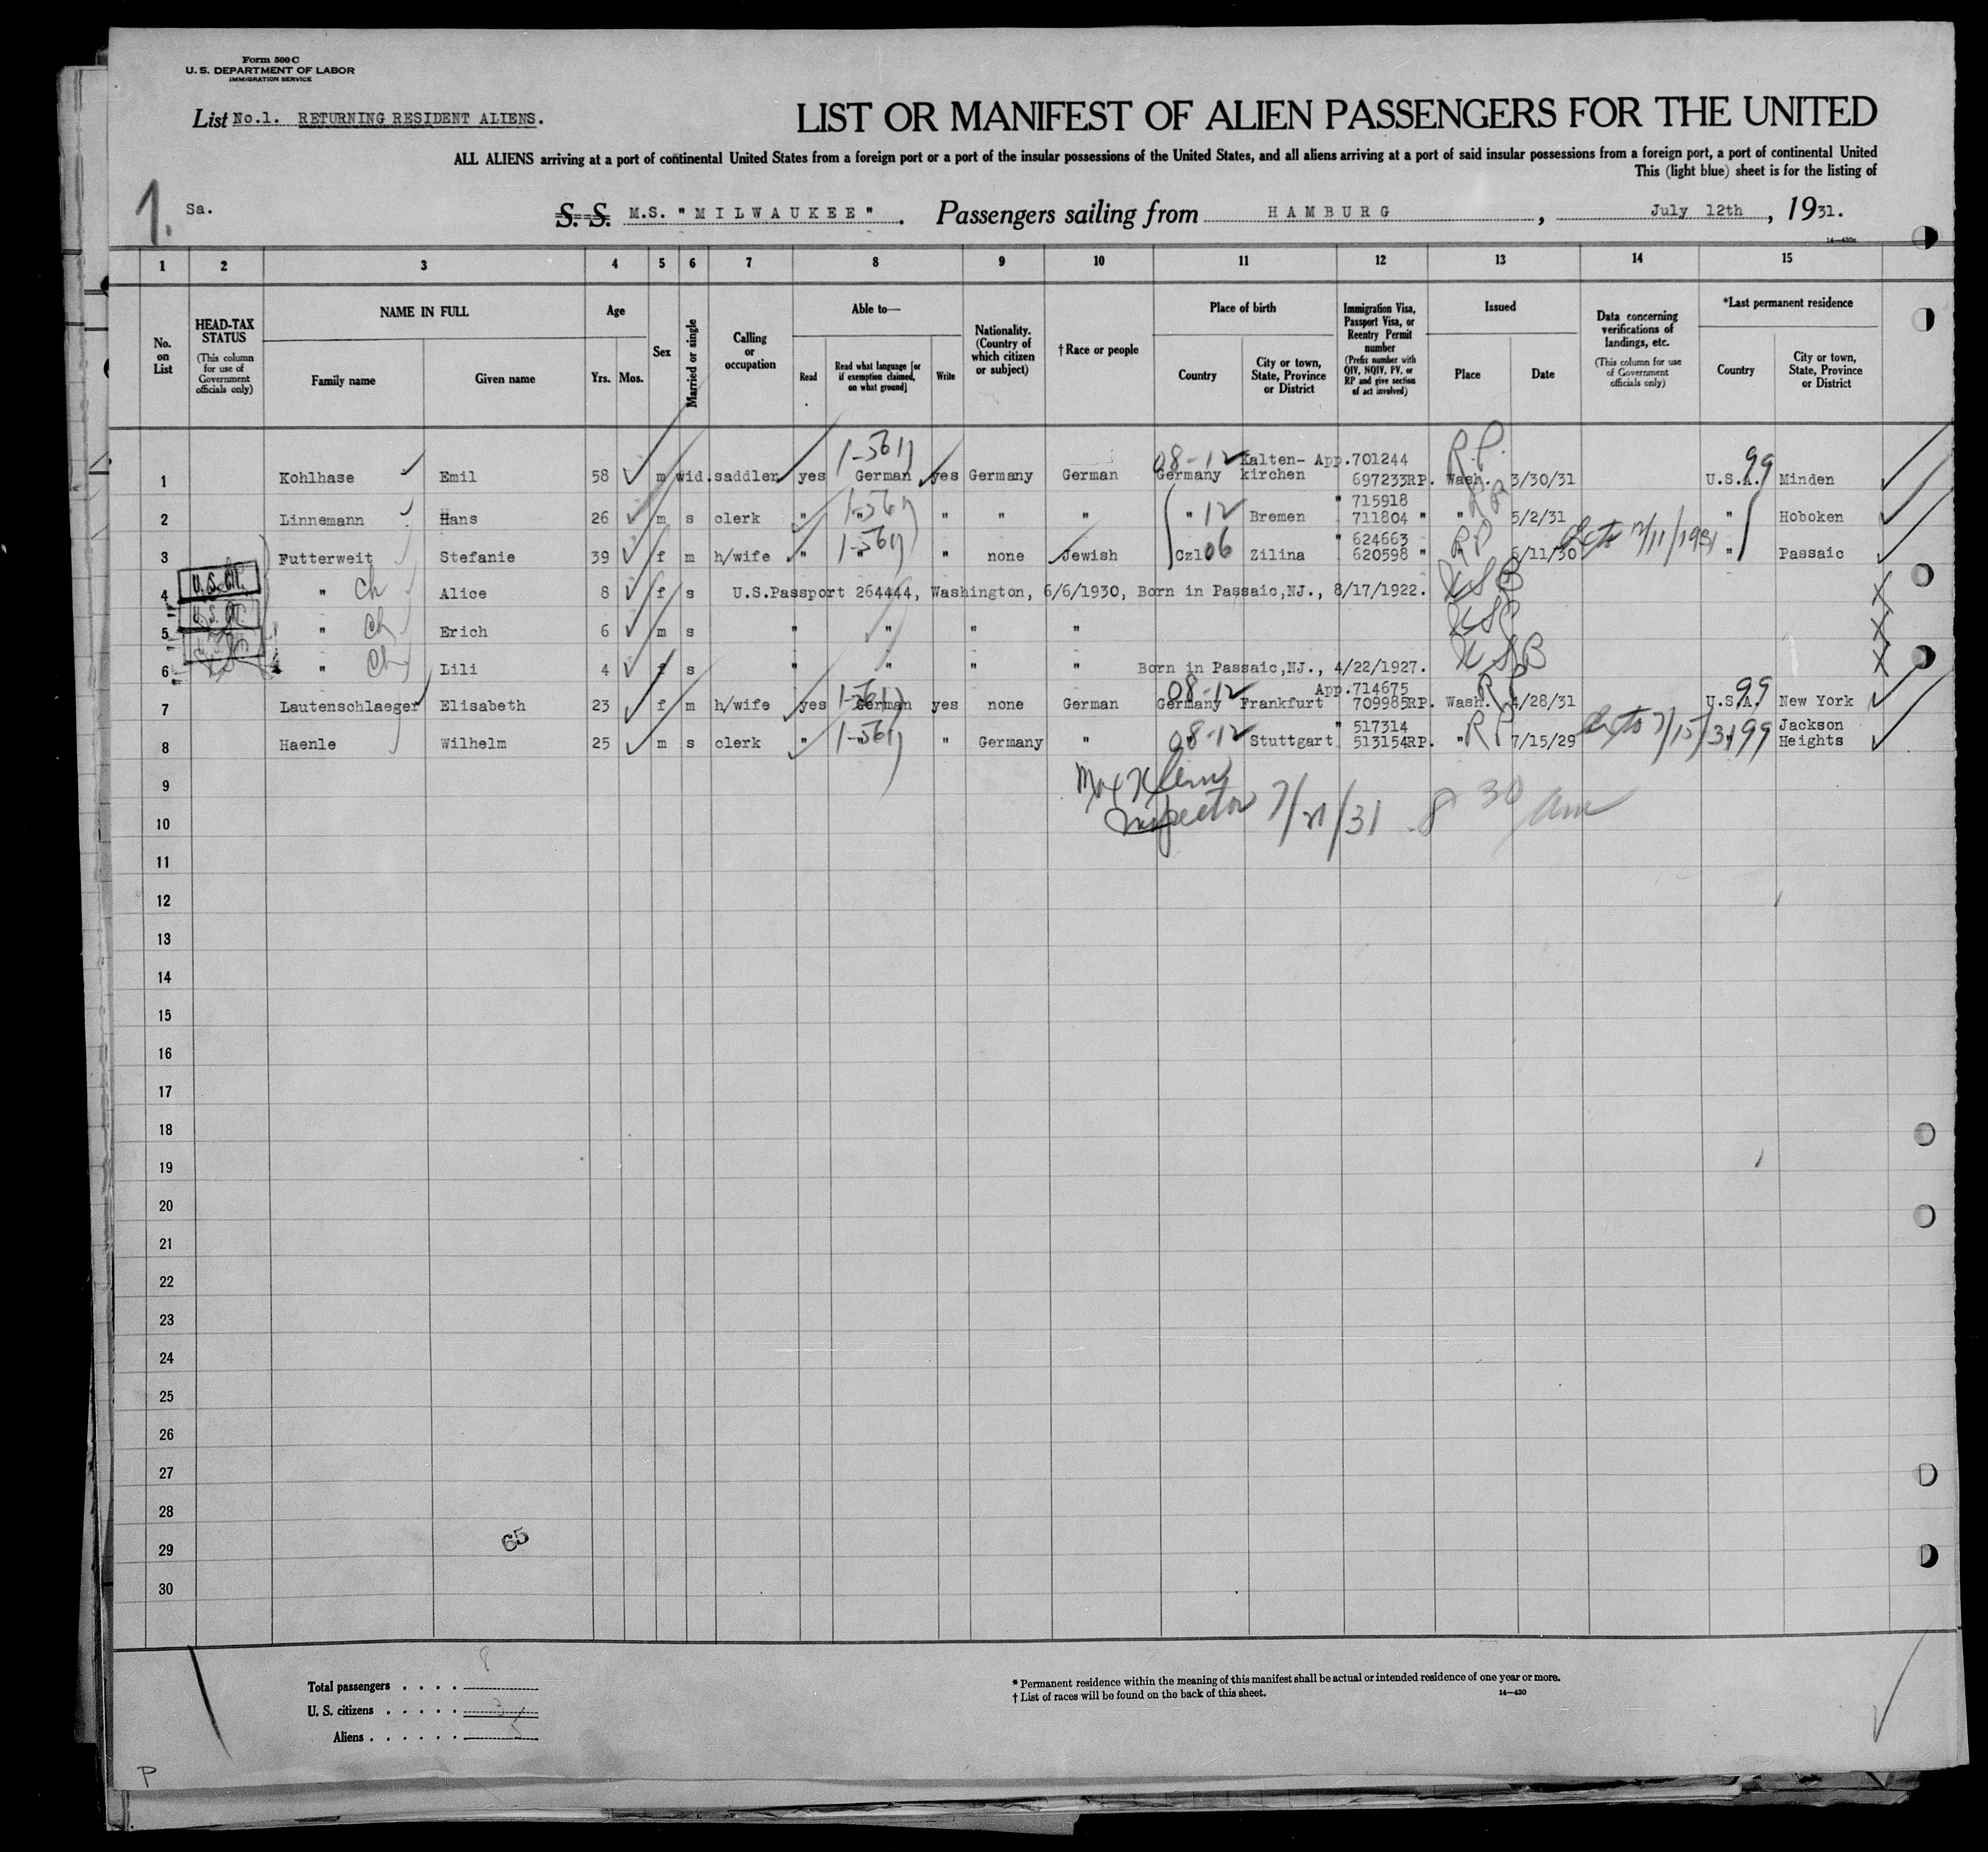 Form 500 C
U. S. DEPARTMENT OF LABOR
IMMIGRATION SERVICE
List No.1. RETURNING RESIDENT ALIENS.
LIST OR MANIFEST OF ALIEN PASSENGERS FOR THE UNITED
ALL ALIENS arriving at a port of continental United States from a foreign port or a port of the insular possessions of the United States, and all aliens arriving at a port of said insular possessions from a foreign port, a port of continental United
This (light blue) sheet is for the listing of
1. Sa. S. S. M.S. "MILWAUKEE". Passengers sailing from HAMBURG, July 12th, 1931.
14—430c
1 2 3 4 5 6 7 8 9 10 11 12 13 14 15
No. on List
HEAD-TAX STATUS (This column for use of Government officials only)
NAME IN FULL
Family name Given name
Age
Yrs. Mos.
Sex
Married or single
Calling or occupation
Able to—
Read Read what language [or if exemption claimed, on what ground] Write
Nationality. (Country of which citizen or subject)
†Race or people
Place of birth
Country City or town, State, Province or District
Immigration Visa, Passport Visa, or Reentry Permit number (Prefix number with QIV, NQIV, PV, or RP and give section of act involved)
Issued
Place Date
Data concerning verifications of landings, etc. (This column for use of Government officials only)
*Last permanent residence
Country City or town, State, Province or District
1 Kohlhase Emil 58 m wid. saddler yes German yes Germany German 08-12 Germany Kalten-kirchen App.701244 697233RP. R.P. Wash. 3/30/31 U.S.A. 99 Minden
2 Linnemann Hans 26 m s clerk " " " " " " 12 Bremen " 715918 711804 " RP " 5/2/31 " Hoboken
3 Futterweit Stefanie 39 f m h/wife " " " none Jewish Czl 06 Zilina " 624663 620598 " RP " 6/11/30 " Passaic
4 U.S. CIT. " Ch Alice 8 f s U.S.Passport 264444, Washington, 6/6/1930, Born in Passaic,NJ., 8/17/1922.
5 " Ch Erich 6 m s " " " "
6 " Ch Lili 4 f s " " " " Born in Passaic,NJ., 4/22/1927.
7 Lautenschlaeger Elisabeth 23 f m h/wife yes German yes none German 08-12 Germany Frankfurt App.714675 709985RP. RP Wash. 4/28/31 U.S.A. 99 New York
8 Haenle Wilhelm 25 m s clerk " " " Germany " 08-12 Stuttgart " 517314 513154RP. " RP 7/15/29 99 Jackson Heights
9
Inspector 7/21/31 8 30 am
10
11
12
13
14
15
16
17
18
19
20
21
22
23
24
25
26
27
28
29 65
30
Total passengers . . . . 8
U. S. citizens . . . . . 3
Aliens . . . . . . 5
* Permanent residence within the meaning of this manifest shall be actual or intended residence of one year or more.
† List of races will be found on the back of this sheet.
14—430
P